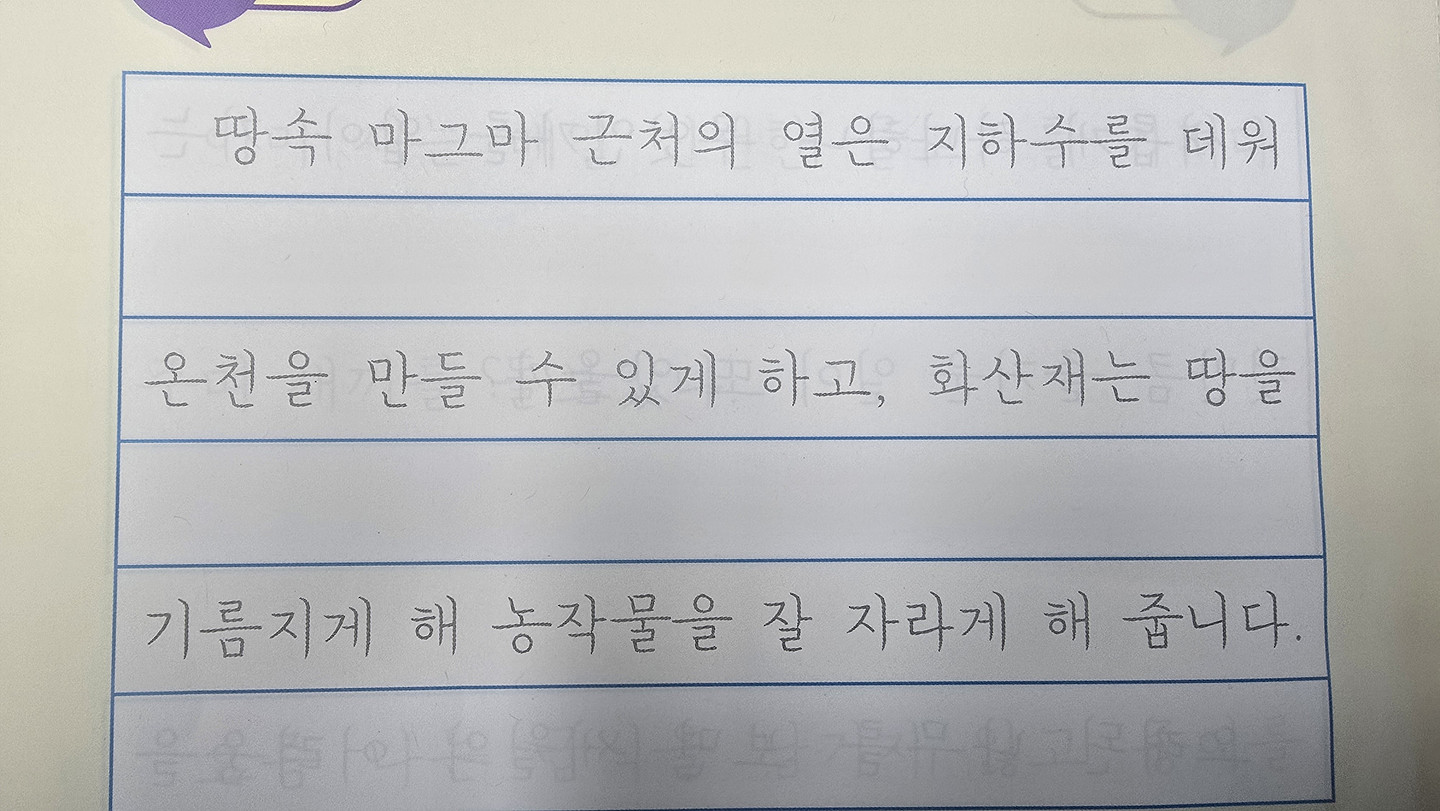 땅속 마그마 근처의 열은 지하수를 데워
온천을 만들 수 있게 하고, 화산재는 땅을
기름지게 해 농작물을 잘 자라게 해 줍니다.